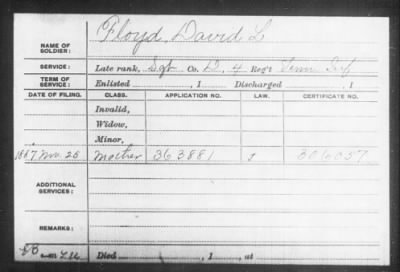 Floyd, David L
NAME OF SOLDIER:
SERVICE: Late rank, Sgt Co. D, 4 Reg't Tenn Inf
TERM OF SERVICE: Enlisted , 1 Discharged , 1
DATE OF FILING. CLASS. APPLICATION NO. LAW. CERTIFICATE NO.
Invalid,
Widow,
Minor,
1887 Nov. 25 Mother 363881 306057
ADDITIONAL SERVICES:
REMARKS:
Died , 1 , at